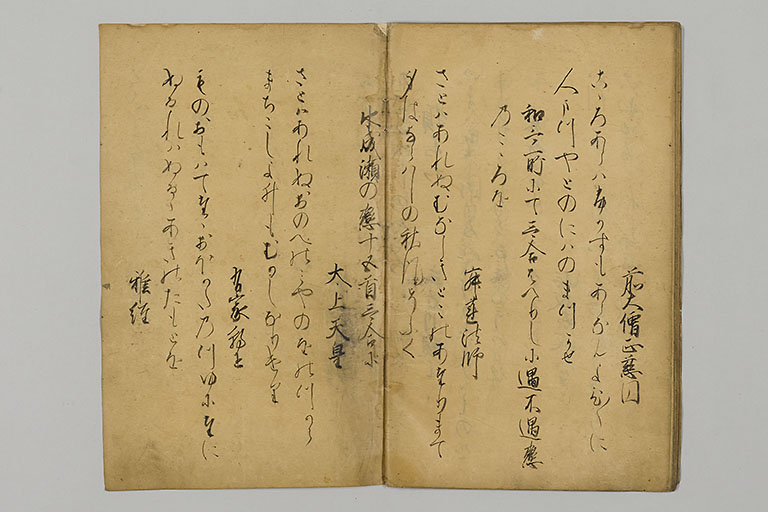 前大僧正慈円
こゝろあらはふかすもあらなんよひ／＼に
人まつやとのにはのまつかせ
和哥所にて哥合はへりしに遇不遇戀
のこゝろを
寂蓮法師
さとはあれぬむなしきとこのあたりまて
身はならはしの秋風そふく
水無瀬の戀十五首哥合に
大上天皇
さとはあれぬおのへのみやのをのつから
まちこしよひもむかしなりけり
有家朝臣
ものおもはてたゝおほかたのつゆにたに
ぬるれはぬるゝあきのたもとを
雅經